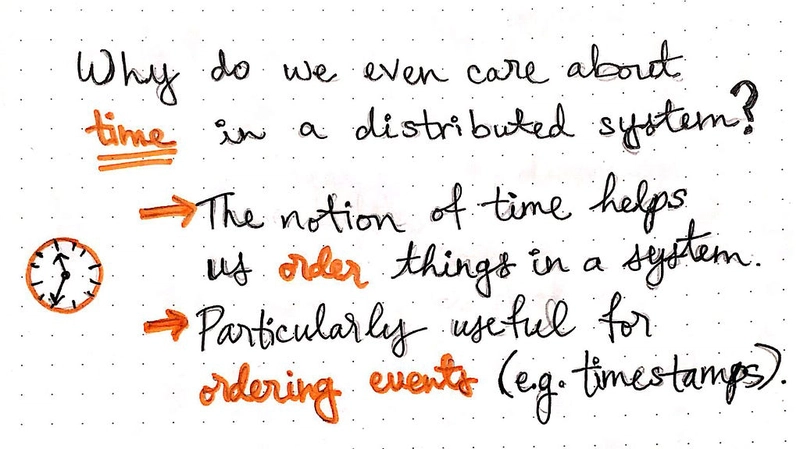 Why do we even care about
time in a distributed system?
→ The notion of time helps
us order things in a system.
→ Particularly useful for
ordering events (e.g. timestamps).